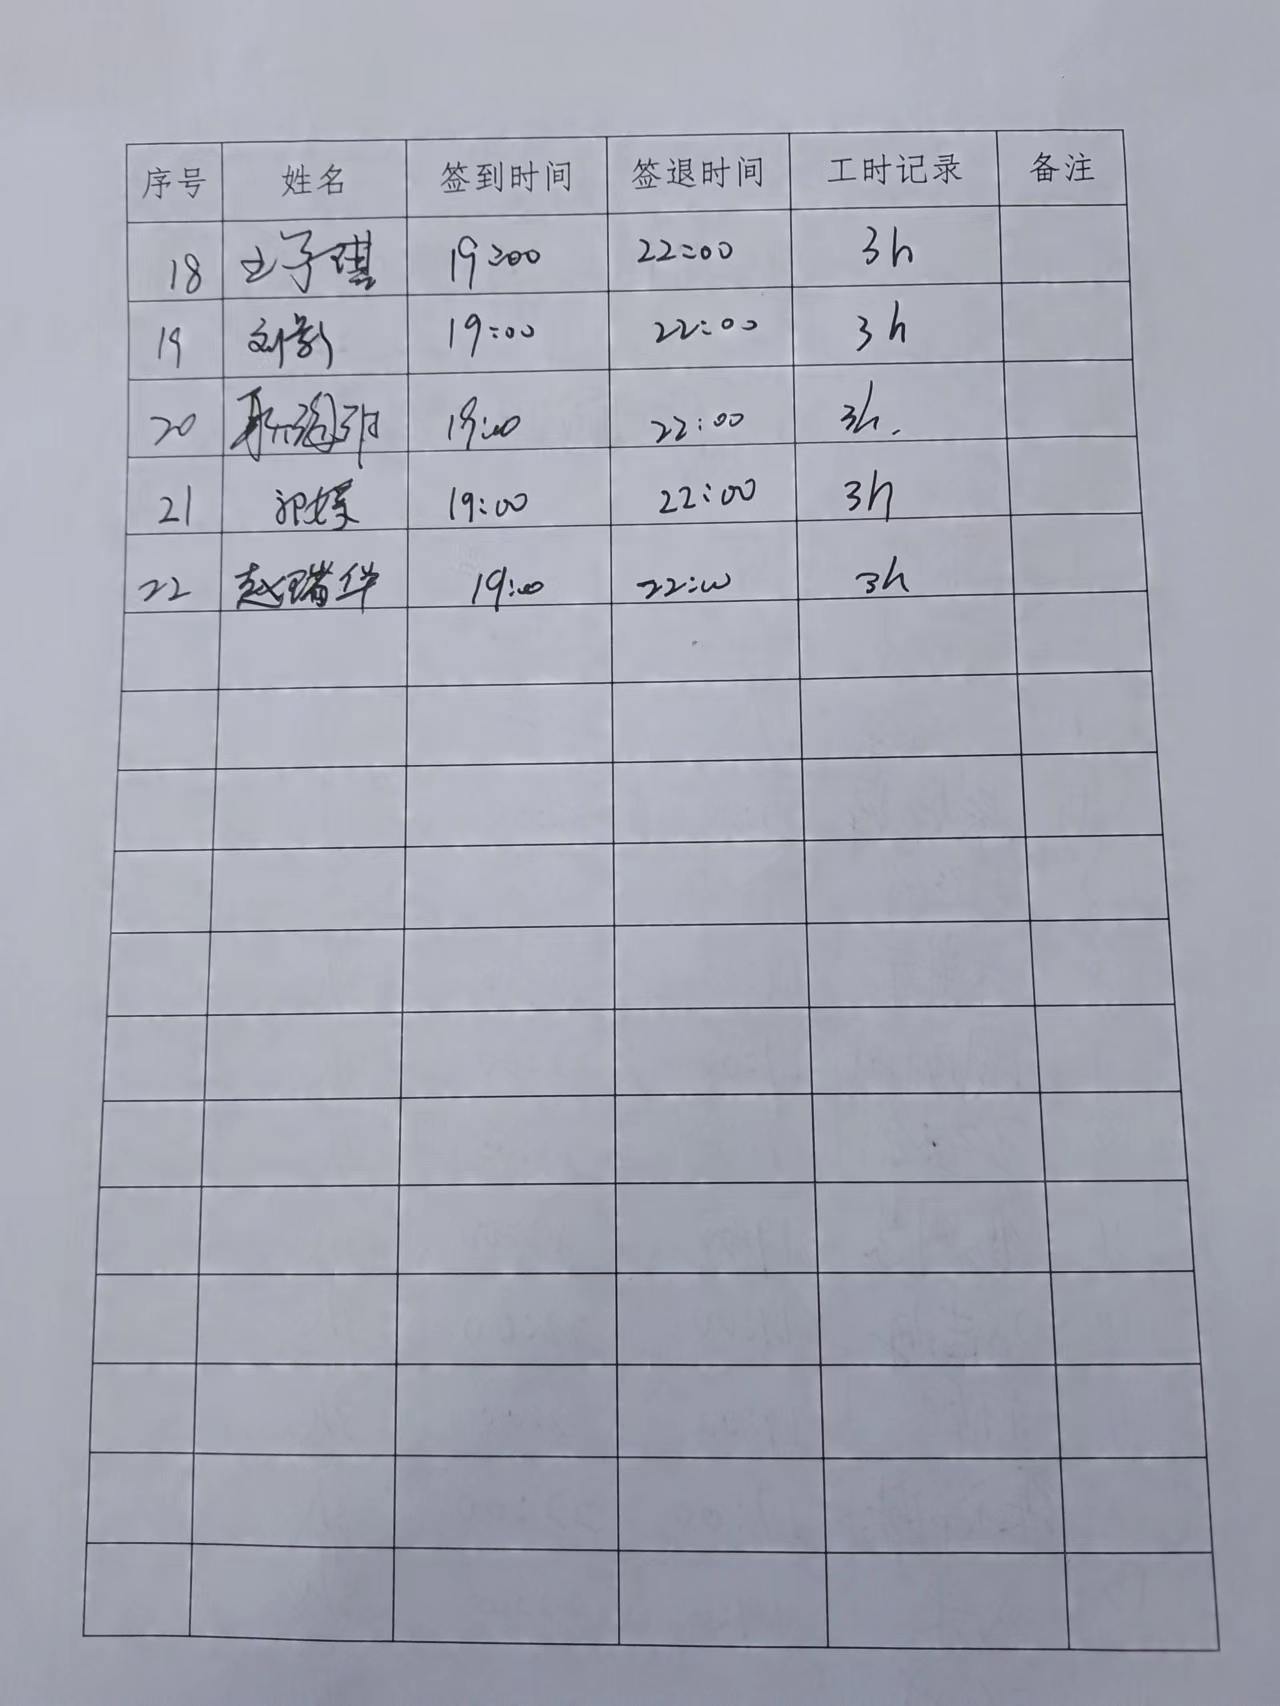 序号 姓名 签到时间 签退时间 工时记录 备注
18 王子琪 19:00 22:00 3h
19 刘影 19:00 22:00 3h
20 19:00 22:00 3h.
21 19:00 22:00 3h
22 赵瑞华 19:00 22:00 3h